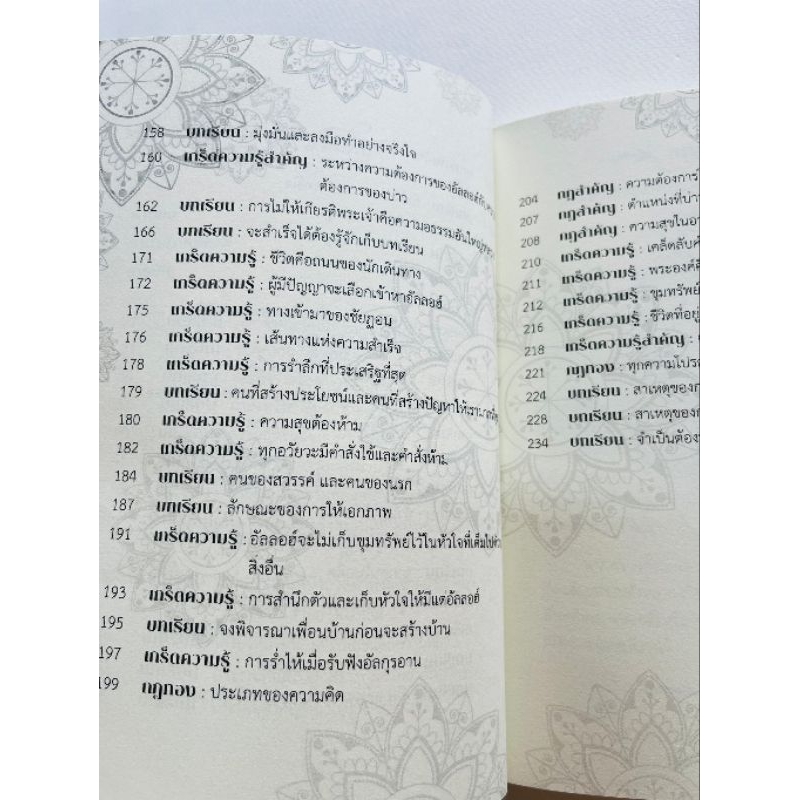 158 บทเรียน : มุ่งมั่นและลงมือทำอย่างจริงใจ
160 เกร็ดความรู้สำคัญ : ระหว่างความต้องการของอัลลอฮ์กับความ
ต้องการของบ่าว
162 บทเรียน : การไม่ให้เกียรติพระเจ้าคือความอธรรมอันใหญ่หลวง
166 บทเรียน : จะสำเร็จได้ต้องรู้จักเก็บบทเรียน
171 เกร็ดความรู้ : ชีวิตคือถนนของนักเดินทาง
172 เกร็ดความรู้ : ผู้มีปัญญาจะเลือกเข้าหาอัลลอฮ์
175 เกร็ดความรู้ : ทางเข้ามาของชัยฏอน
176 เกร็ดความรู้ : เส้นทางแห่งความสำเร็จ
178 เกร็ดความรู้ : การรำลึกที่ประเสริฐที่สุด
179 บทเรียน : คนที่สร้างประโยชน์และคนที่สร้างปัญหาให้เรา
180 เกร็ดความรู้ : ความสุขต้องห้าม
182 เกร็ดความรู้ : ทุกอวัยวะมีคำสั่งใช้และคำสั่งห้าม
184 บทเรียน : คนของสวรรค์ และคนของนรก
187 บทเรียน : ลักษณะของการให้เอกภาพ
191 เกร็ดความรู้ : อัลลอฮ์จะไม่เก็บขุมทรัพย์ไว้ในหัวใจที่เต็มไปด้วย
สิ่งอื่น
193 เกร็ดความรู้ : การสำนึกตัวและเก็บหัวใจให้มีแต่อัลลอฮ์
195 บทเรียน : จงพิจารณาเพื่อนบ้านก่อนจะสร้างบ้าน
197 เกร็ดความรู้ : การร่ำไห้เมื่อรับฟังอัลกุรอาน
199 กฎทอง : ประเภทของความคิด
204 กฎสำคัญ : ความต้องการ
207 กฎสำคัญ : ตำแหน่งที่บ่า
208 กฎสำคัญ : ความสุขในอา
210 เกร็ดความรู้ : เคล็ดลับ
211 เกร็ดความรู้ : พระองค์
212 เกร็ดความรู้ : ขุมทรัพย์
216 เกร็ดความรู้ : ชีวิตที่อยู่
218 เกร็ดความรู้สำคัญ :
221 กฎทอง : ทุกความโปรด
224 บทเรียน : สาเหตุของก
228 บทเรียน : สาเหตุของก
234 บทเรียน : จำเป็นต้อง